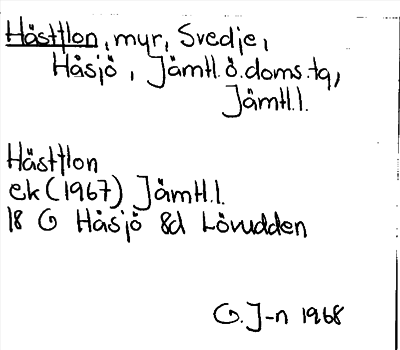 Hästflon, myr, Svedje,
Håsjö, Jämtl. ö. doms. tg,
Jämtl. l.
Hästflon
ek (1967) Jämtl. l.
18 G Håsjö 8d Lövudden
G. J-n 1968